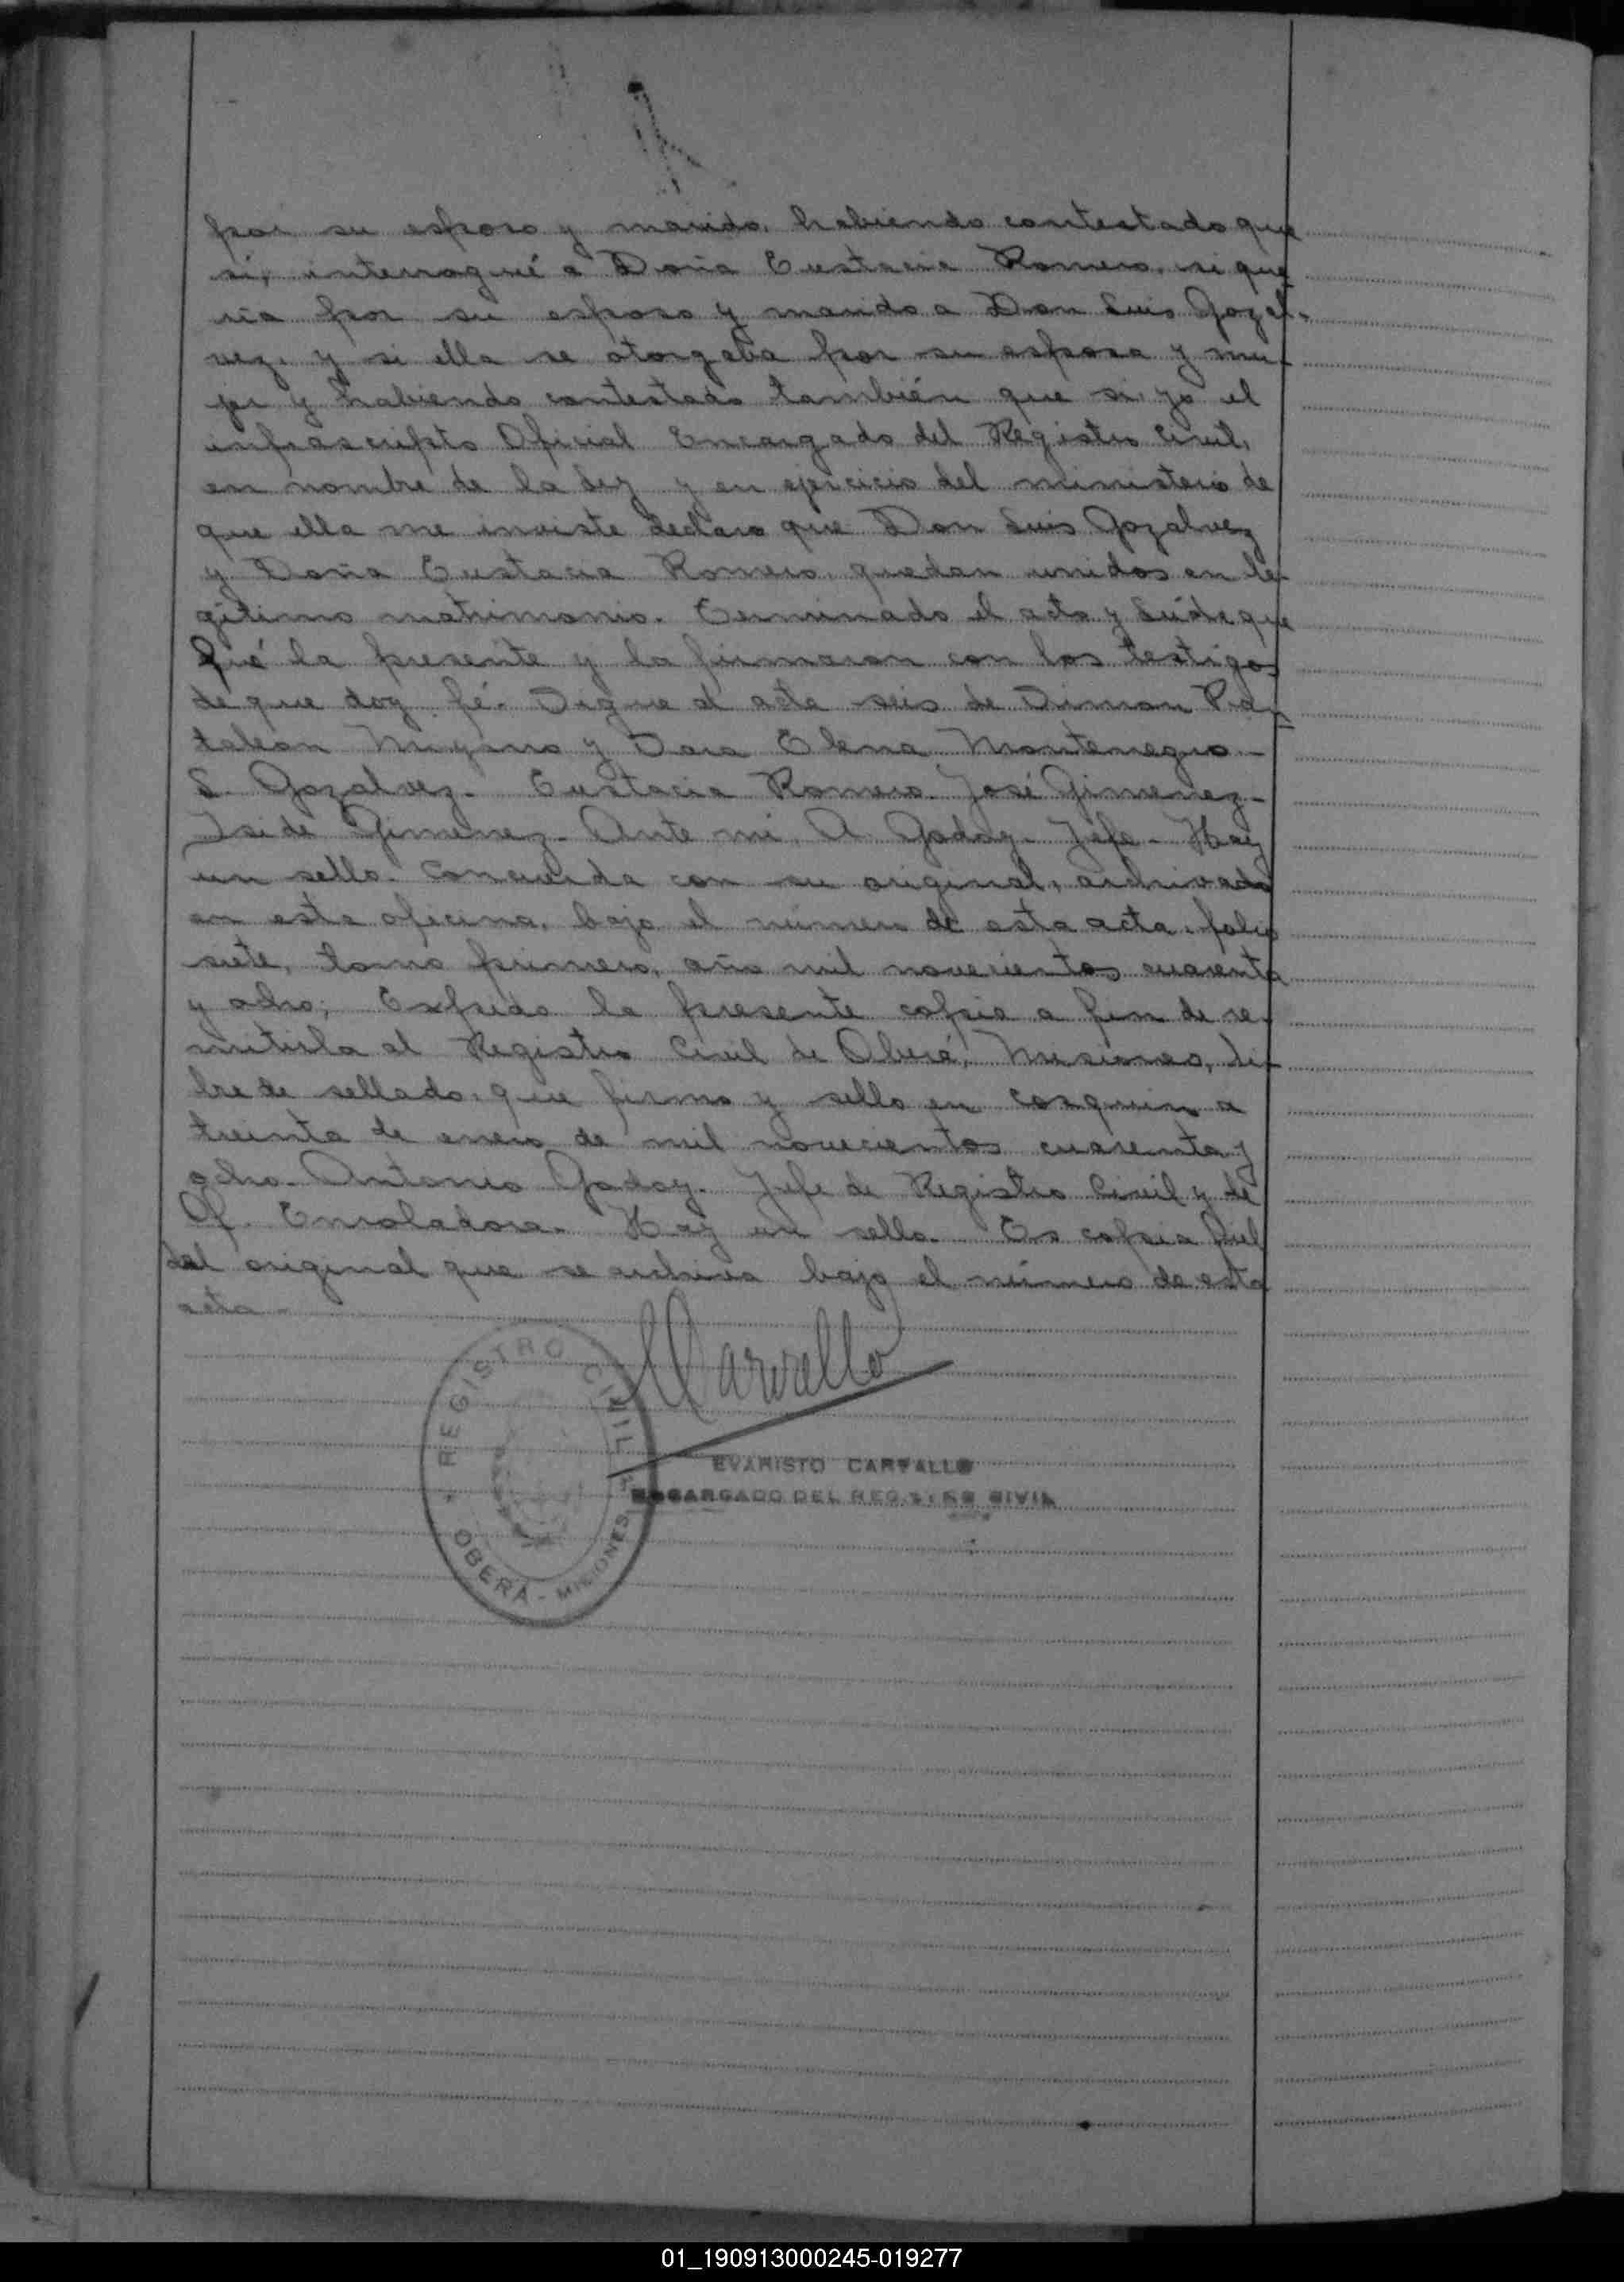 por su esposo y marido, habiendo contestado que
sí, interrogué a Doña Eustacia Romero, si que
ria por su esposo y marido a Don Luis Gozal-
vez, y si ella se otorgaba por su esposa y mu-
jer y habiendo contestado también que si, yo el
infrascripto Oficial Encargado del Registro Civil,
en nombre de la ley y en ejercicio del ministerio de
que ella me inviste declaro que Don Luis Gozalvez
y Doña Eustacia Romero, quedan unidos en le-
gítimo matrimonio. Terminado el acto y leída que
fué la presente y la firmaron con los testigos
de que doy fé. Sigue al acta seis de Simon Pan
taleon Moyano y Sara Elena Montenegro -
L. Gozalvez. Eustacia Romero. José Gimenez -
Gimenez - Ante mi, A. Godoy. Jefe - Hay
un sello. Concuerda con su original, archivado
en esta oficina, bajo el número de esta acta, folio
siete, tomo primero, año mil novecientos cuarenta
y ocho; Expido la presente copia a fin de re-
mitirla al Registro Civil de Oberá, Misiones, li-
bre de sellado, que firmo y sello en Cosquin a
treinta de enero de mil novecientos cuarenta y
ocho. Antonio Godoy. Jefe de Registro Civil y de
Of. Enroladora. Hay un sello. Es copia fiel
del original que se archiva bajo el número de esta
acta -
Carvallo
REGISTRO CIVIL
OBERÁ - MISIONES
EVARISTO CARVALLO
ENCARGADO DEL REGISTRO CIVIL
01_190913000245-019277